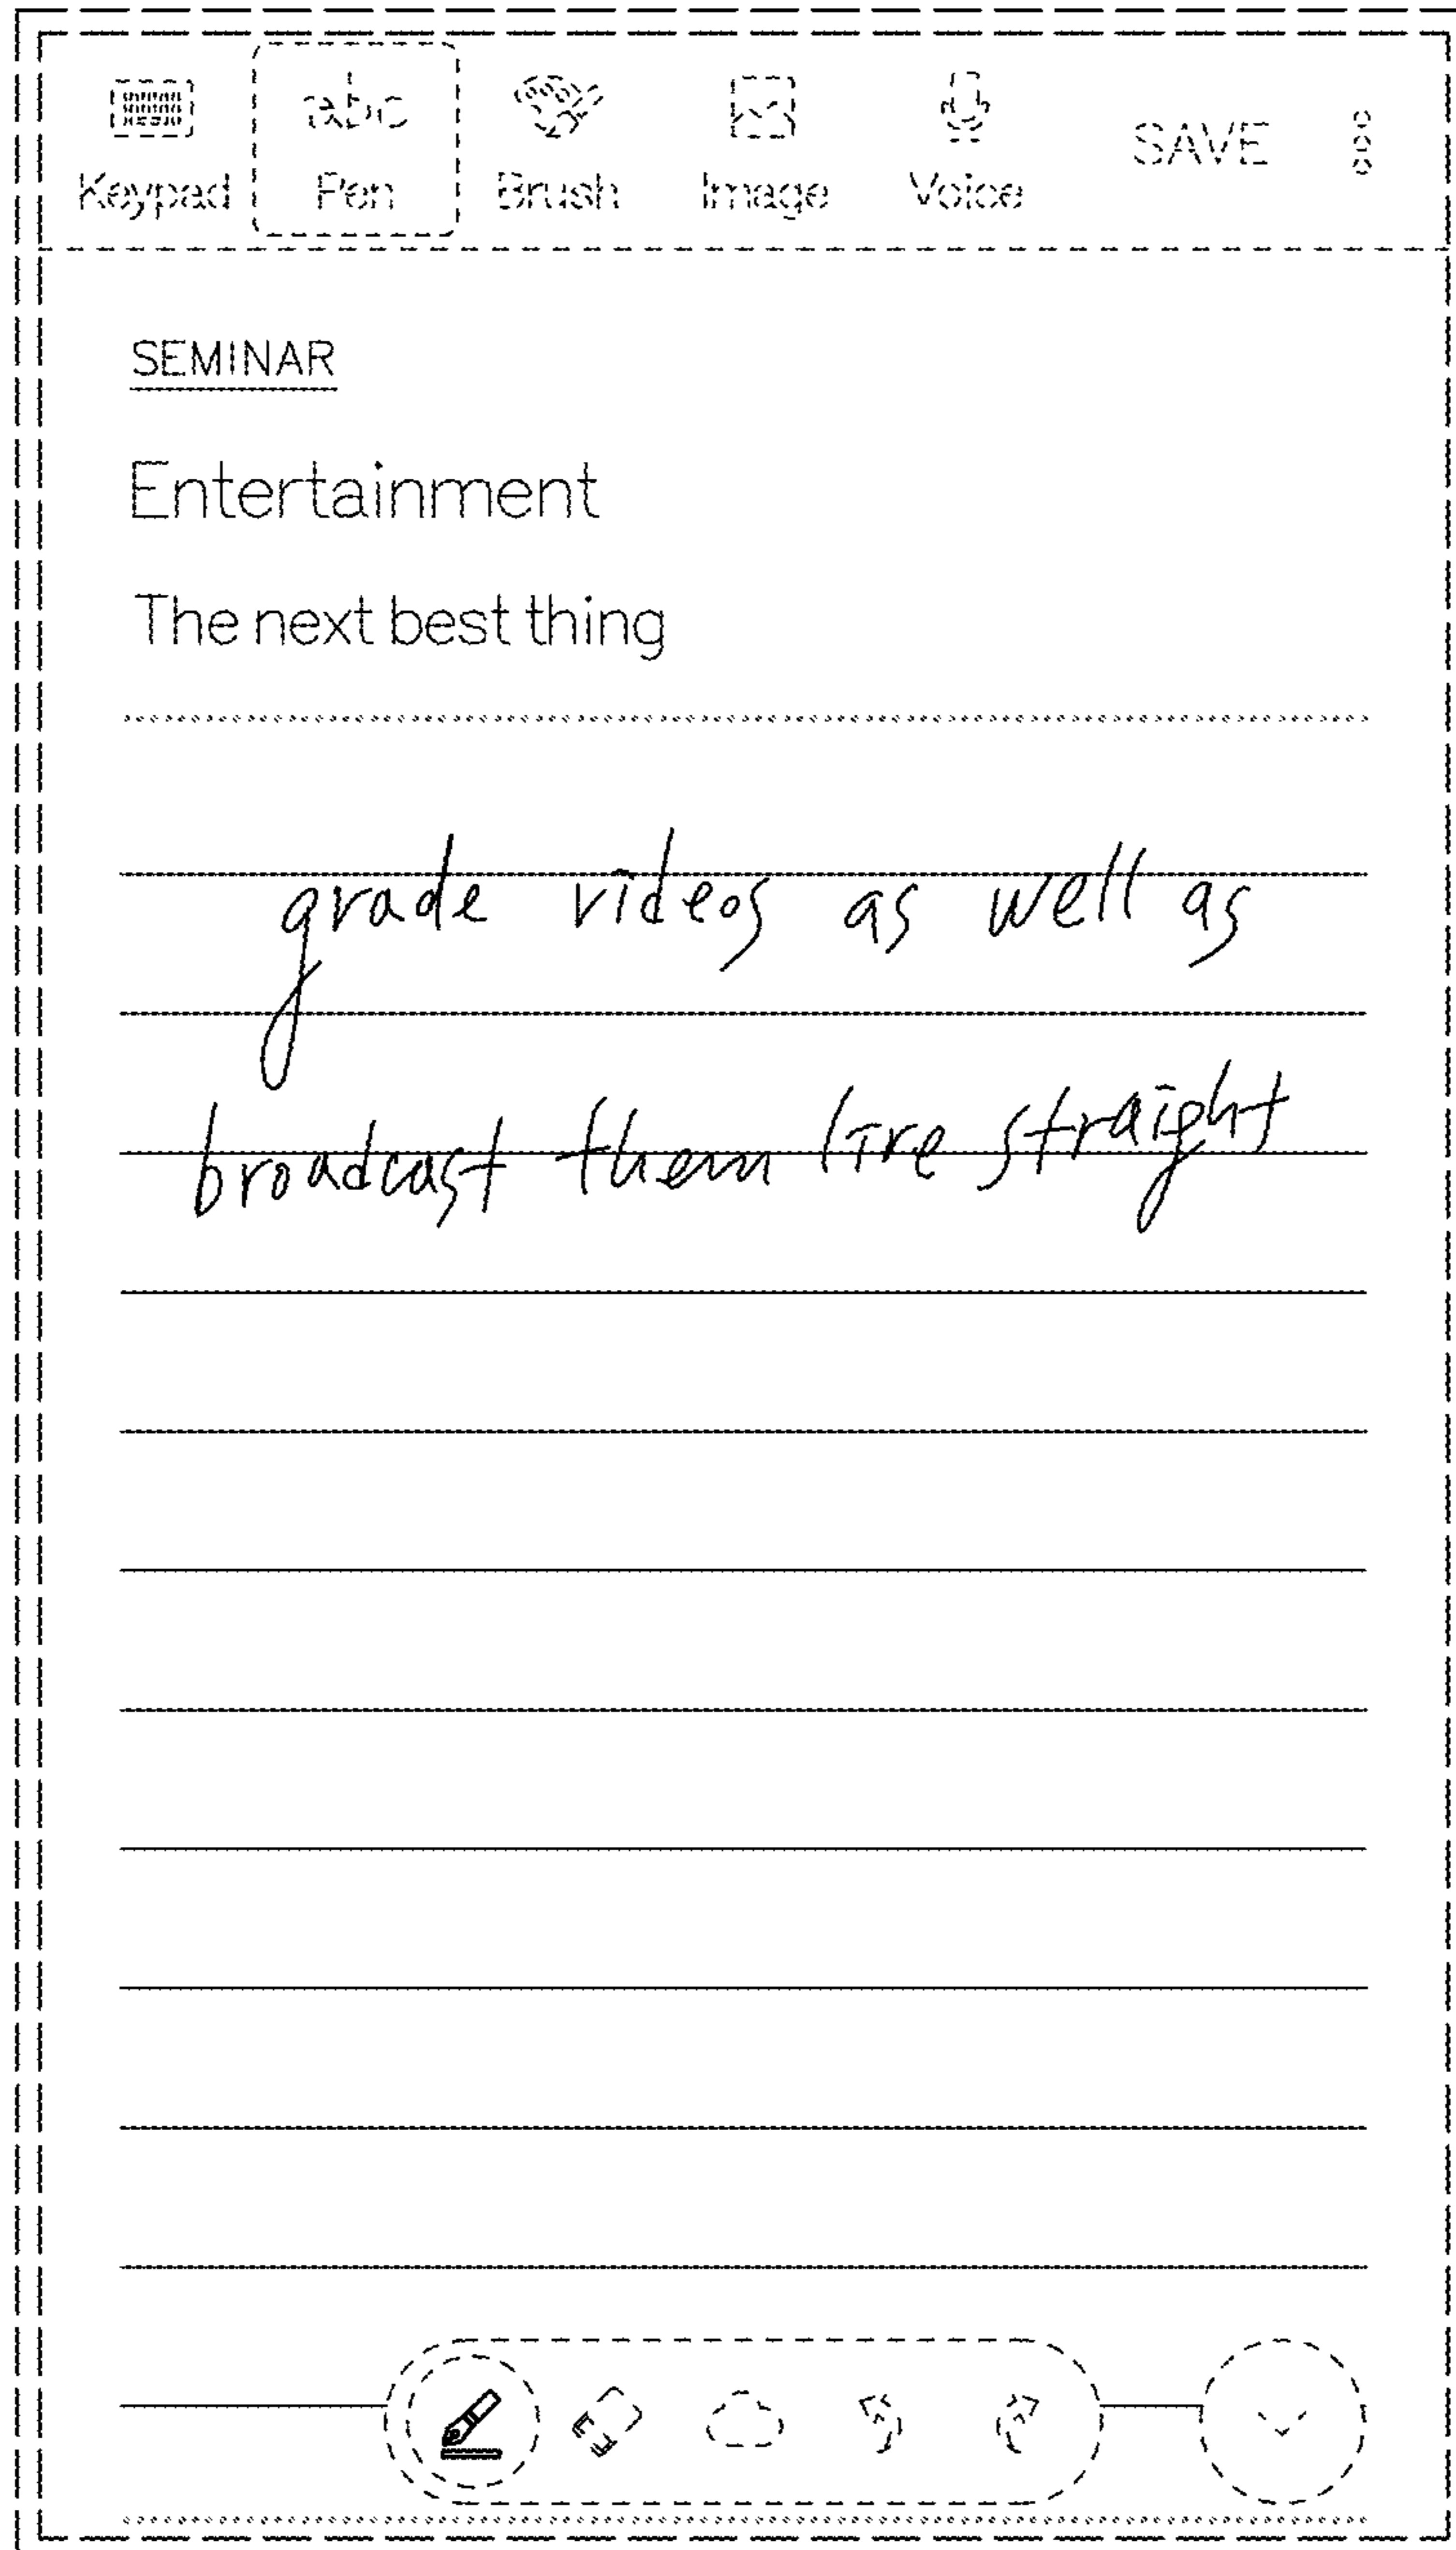 abc
Keypad Pen Brush Image Voice SAVE
SEMINAR
Entertainment
The next best thing
grade videos as well as
broadcast them live straight